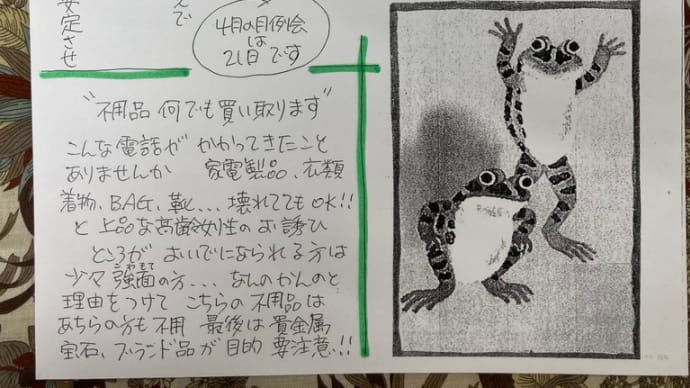 安定させ
えで
4月の月例会
は
21日です
"不用品 何でも買い取ります"
こんな電話が かかってきたこと
ありませんか 家電製品、衣類
着物、BAG、靴... 壊れててもOK!!
と 上品な高齢女性のお誘ひ
ところが おいでになられる方は
少々 強面の方... なんのかんのと
こわもて
理由をつけて こちらの不用品は
あちらの方も不用 最後は貴金属
宝石、ブランド品が目的 要注意!!